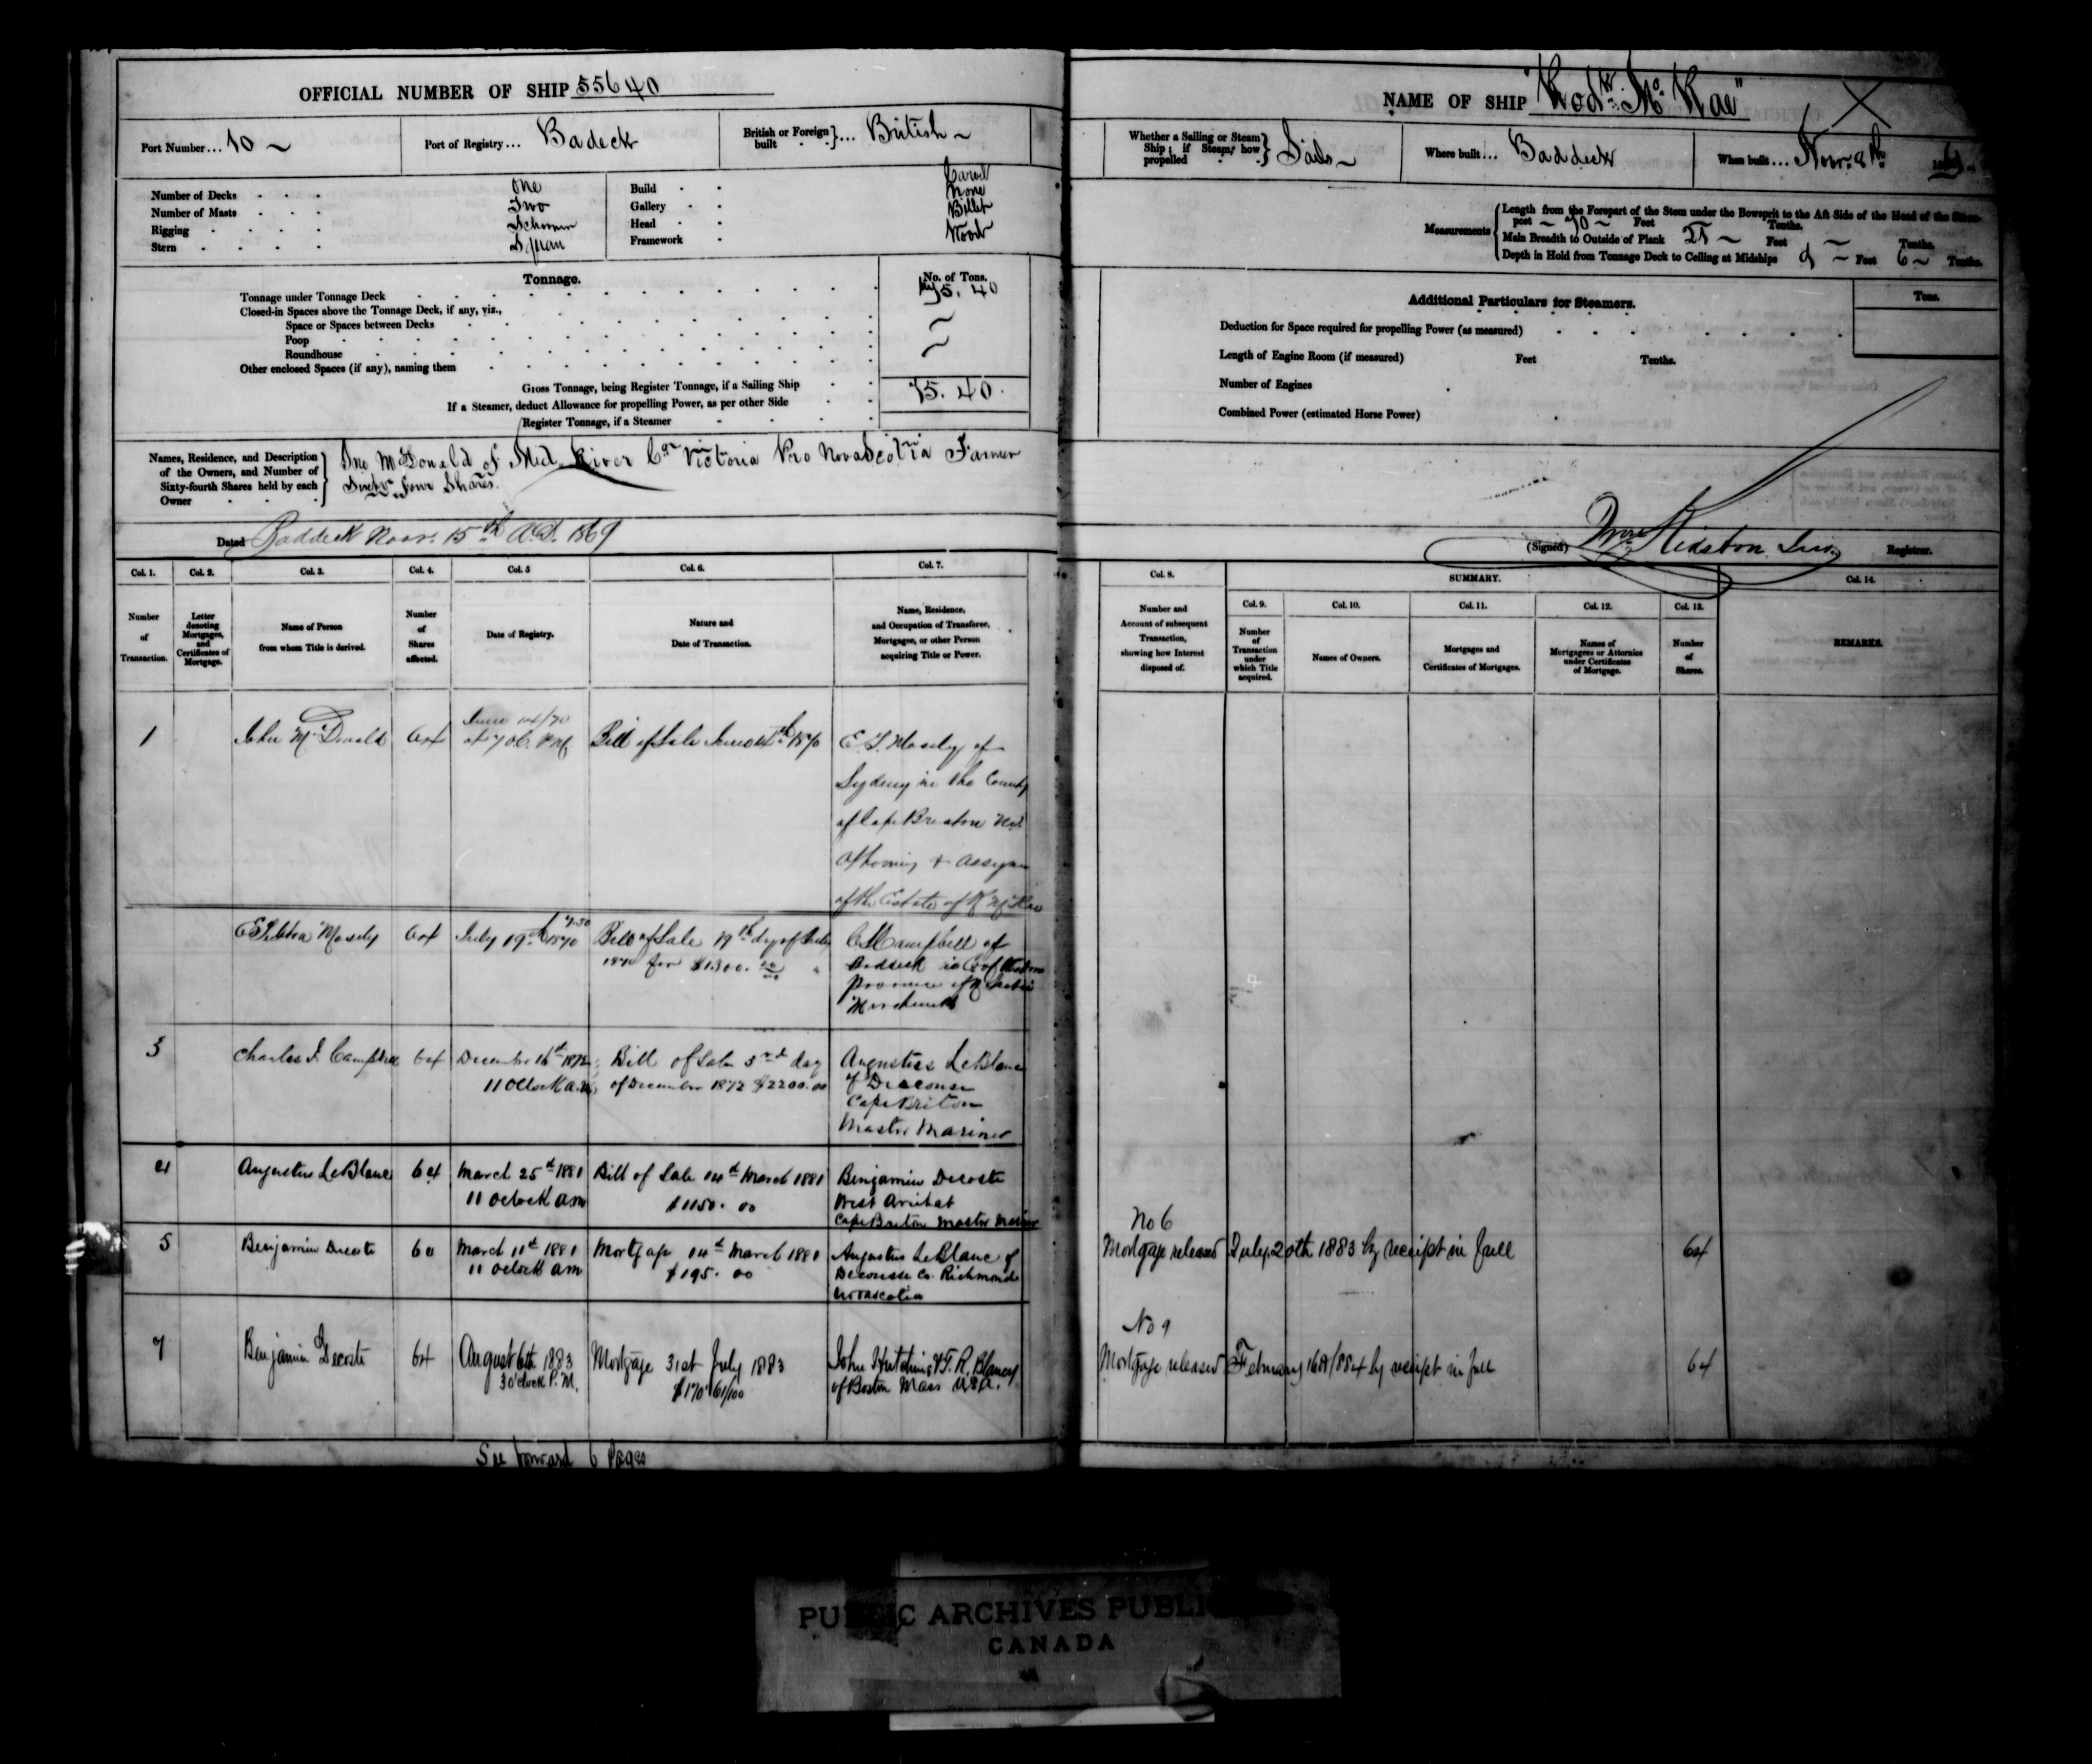 OFFICIAL NUMBER OF SHIP 55640
Port Number... 10 ~
Port of Registry... Badeck
British or Foreign built }... British ~
Number of Decks One
Number of Masts Two
Rigging Schooner
Stern Square
Build Carvel
Gallery None
Head Billet
Framework Wood
Tonnage.
No. of Tons.
Tonnage under Tonnage Deck 75. 40
Closed-in Spaces above the Tonnage Deck, if any, viz.,
Space or Spaces between Decks ~
Poop
Roundhouse ~
Other enclosed Spaces (if any), naming them
Gross Tonnage, being Register Tonnage, if a Sailing Ship 75. 40
If a Steamer, deduct Allowance for propelling Power, as per other Side
Register Tonnage, if a Steamer
Names, Residence, and Description
of the Owners, and Number of
Sixty-fourth Shares held by each
Owner
Jno McDonald of Mid. River Co. Victoria Pro Nova Scotia Farmer
Sixty four Shares.
Dated Baddeck Novr. 15th A.D. 1869
Col. 1.
Number of Transaction.
Col. 2.
Letter denoting Mortgages, and Certificates of Mortgage.
Col. 3.
Name of Person from whom Title is derived.
Col. 4.
Number of Shares affected.
Col. 5
Date of Registry.
Col. 6.
Nature and Date of Transaction.
Col. 7.
Name, Residence, and Occupation of Transferee, Mortgagee, or other Person acquiring Title or Power.
1
John McDonald
64
June 14/70
Bill of Sale June 14th 1870
E. T. Mosely of
Sydney in the County
of Cape Breton N.S.
Attorney & Assignee
of the Estate of R McRae
Mosely
64
July 19th 1870
Bill of Sale 19th dy of July
1870 for $1300. 00/00
C J Campbell of
Baddeck in Co of Victoria
Province of N Scotia
Merchant
3
Charles J. Campbell
64
December 16th 1872
11 OClock a.m.
Bill of Sale 3rd day
of December 1872 $2200.00
Augustus LeBlanc
of Descouse
Cape Briton
Master Mariner
4
Augustus LeBlanc
64
March 25th 1881
11 oclock am
Bill of Sale 14th March 1881
$1150. 00
Benjamin Decoste
West Arichat
Cape Breton Master Mariner
5
Benjamin Decoste
64
March 11th 1881
11 oclock am
Mortgage 14th March 1881
$195. 00
Augustus LeBlanc of
Decousse Co. Richmond
Novascotia
7
Benjamin Decoste
64
August 6th 1883
3 o'clock P.M.
Mortgage 31st July 1883
$170 61/100
John Hutchins & T. R. Blaney
of Boston Mass U.S.A.
See forward 6 Pages
NAME OF SHIP "Rodk. Mc Rae"
Whether a Sailing or Steam
Ship; if Steam, how
propelled
Sails ~
Where built... Baddeck
When built... Novr. 8th 1869
Measurements
Length from the Forepart of the Stem under the Bowsprit to the Aft Side of the Head of the Stern-
post ~ 70 ~ Feet Tenths.
Main Breadth to Outside of Plank Feet ~ Tenths.
Depth in Hold from Tonnage Deck to Ceiling at Midships ~ Feet 6 ~ Tenths.
Additional Particulars for Steamers.
Tons.
Deduction for Space required for propelling Power (as measured)
Length of Engine Room (if measured) Feet Tenths.
Number of Engines
Combined Power (estimated Horse Power)
(Signed) Wm Kidston Junr. Registrar.
Col. 8.
Number and Account of subsequent Transaction, showing how Interest disposed of.
SUMMARY.
Col. 9.
Number of Transaction under which Title acquired.
Col. 10.
Names of Owners.
Col. 11.
Mortgages and Certificates of Mortgages.
Col. 12.
Names of Mortgagees or Attornies under Certificates of Mortgage.
Col. 13.
Number of Shares.
Col. 14.
REMARKS.
No 6
Mortgage released July 20th 1883 by receipt in full 64
No 9
Mortgage released February 16th 1884 by receipt in full 64
PUBLIC ARCHIVES PUBLI
CANADA